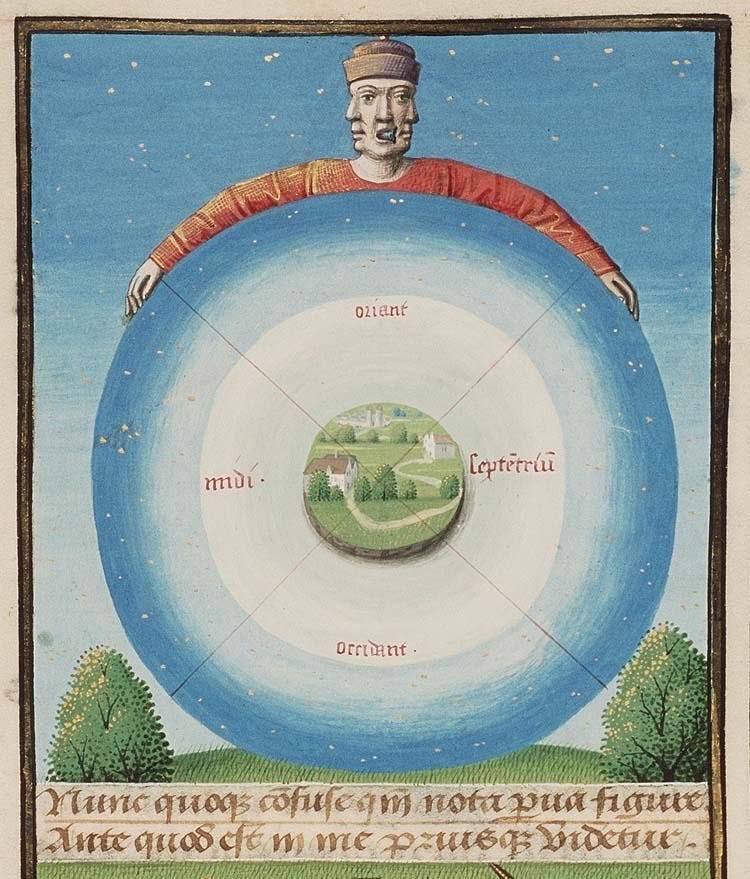 oriant
midi· septẽtriũ
occidant·
Nunc quoqꝫ cõfuse qm̃ nota ꝑua figure.
Ante quod est in me priusqꝫ videtur.